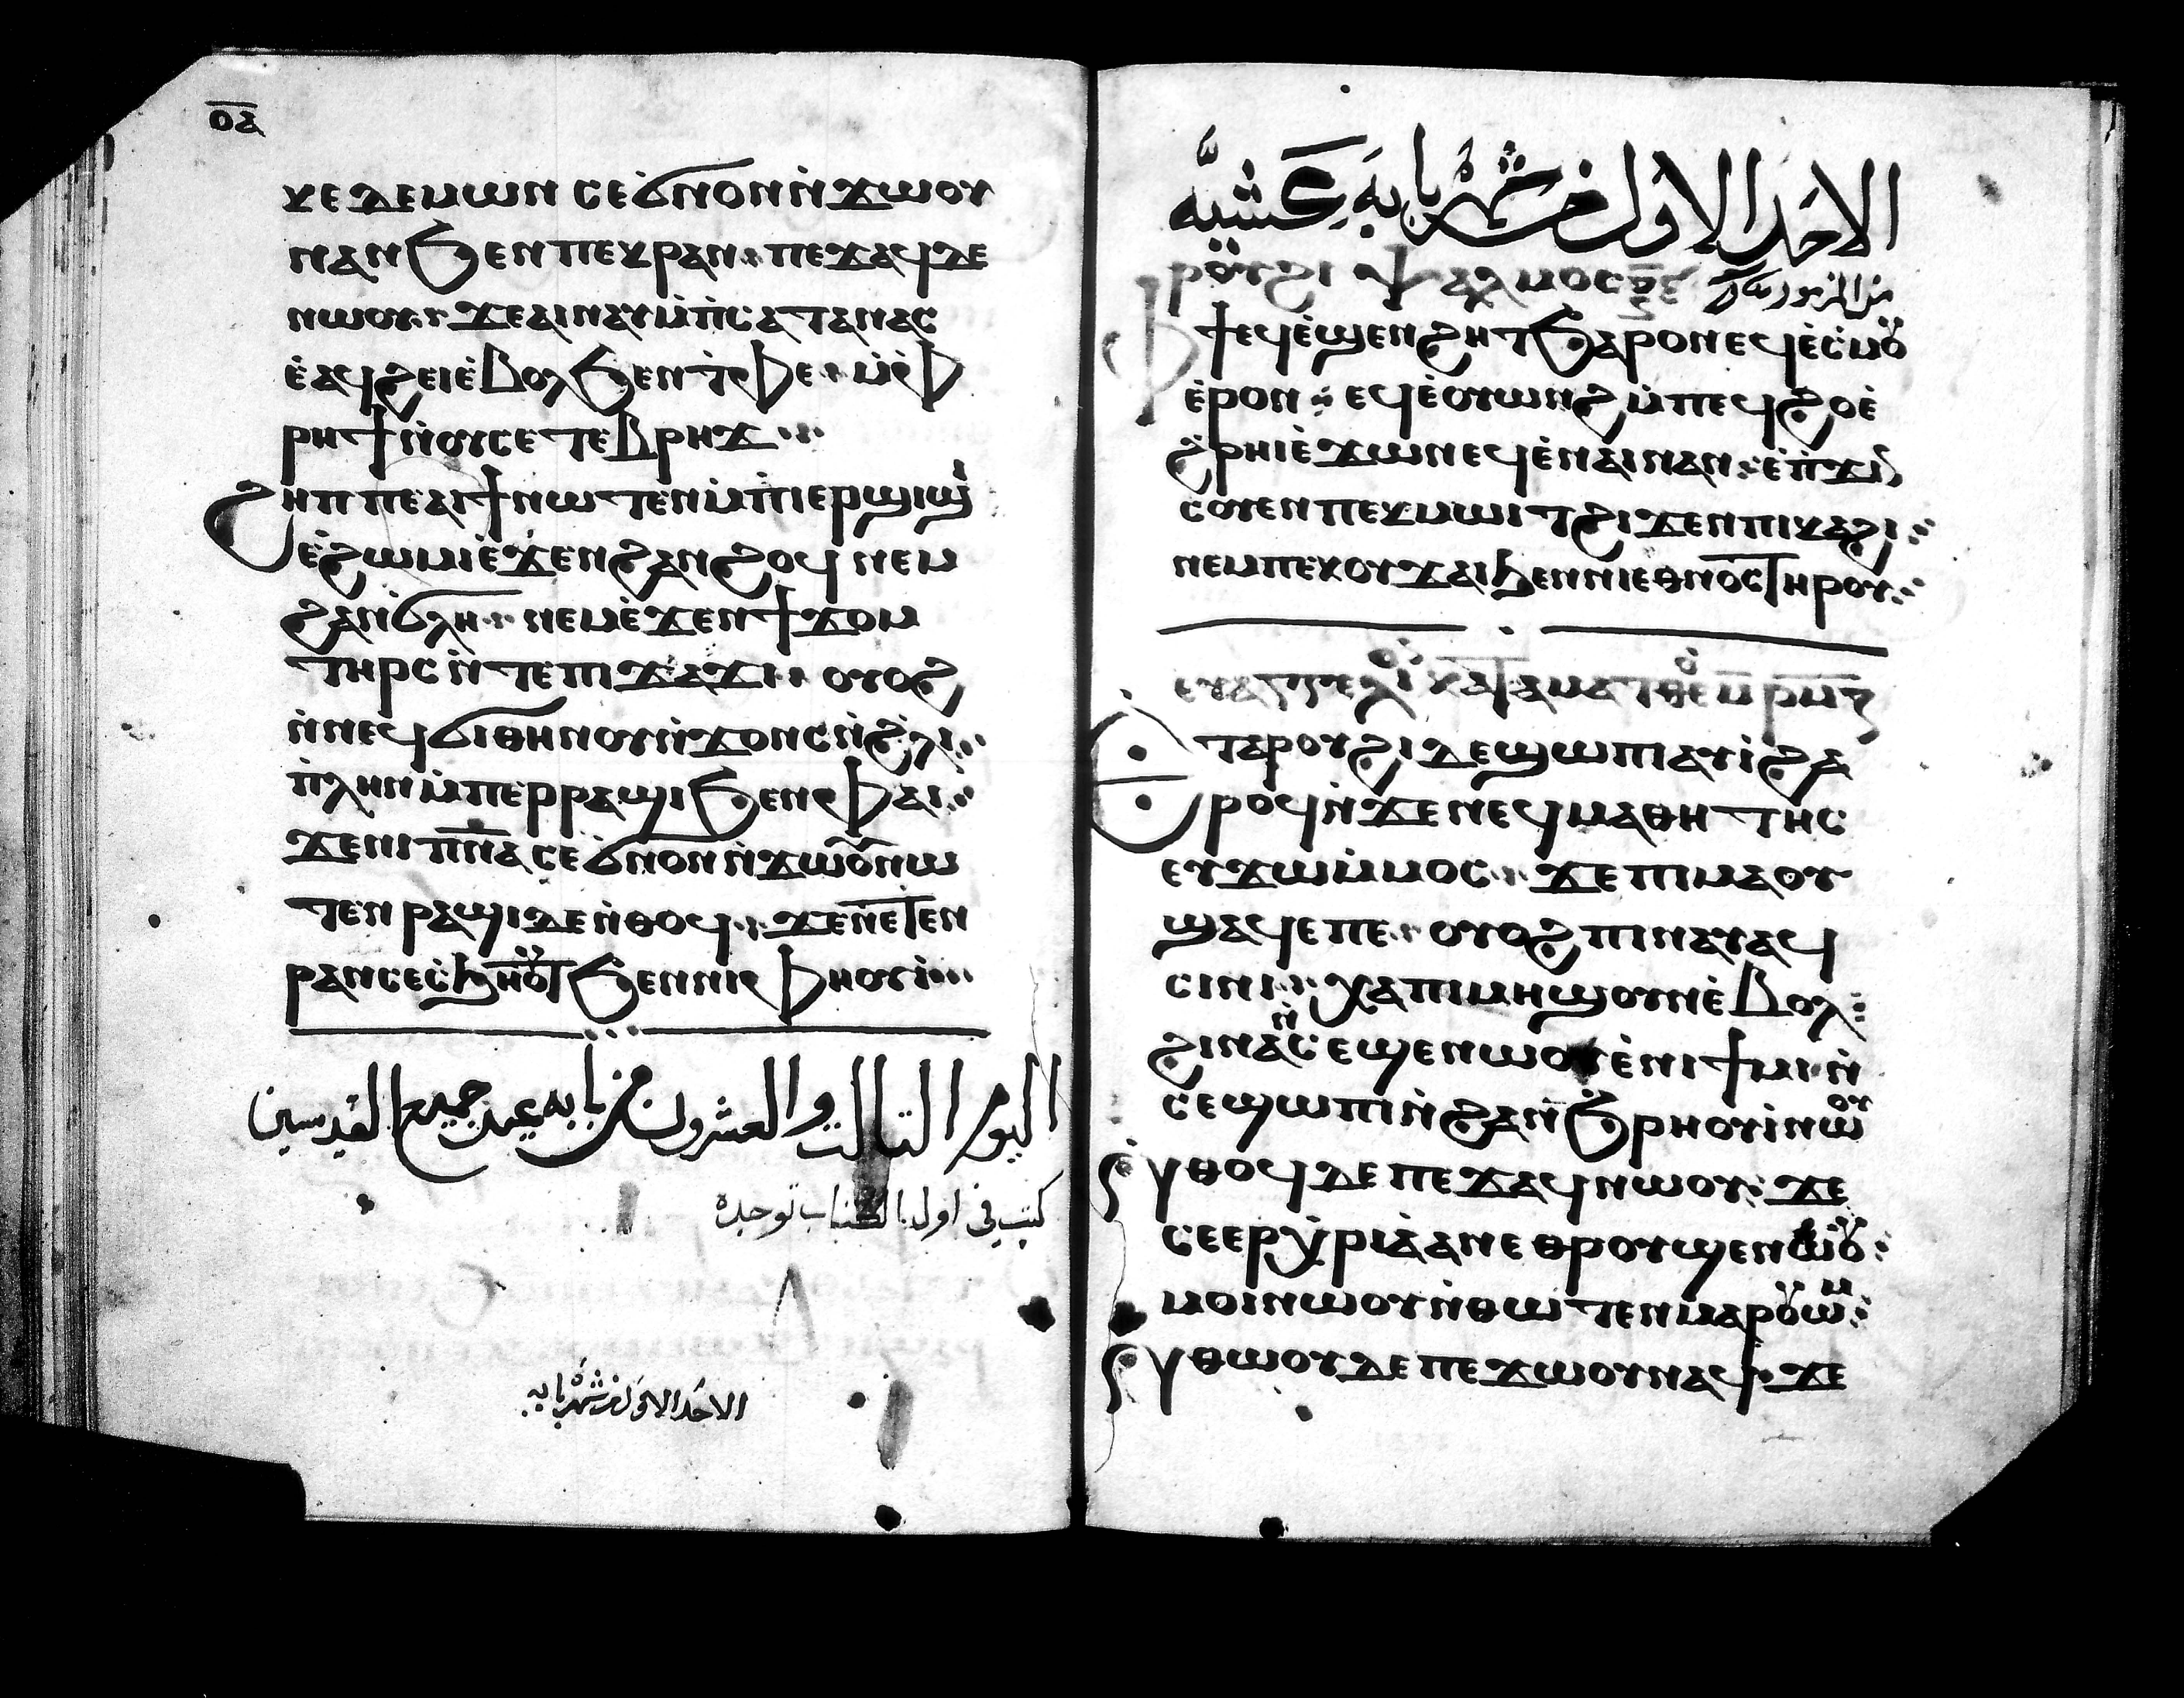 ⲟⲁ
ⲭⲉ ⲇⲉⲙⲱⲛ ⲥⲉϭⲛⲟⲛ ⲛ̇ϫⲱⲟⲩ
ⲛⲁⲛ ϧⲉⲛ ⲡⲉⲕⲣⲁⲛ ⲡⲉϫⲁϥ ⲇⲉ
ⲛⲱⲟⲩ ϫⲉ ⲁⲓⲛⲁⲩ ⲙ̇ⲡ̇ⲥⲁⲧⲁⲛⲁⲥ
ⲉ̇ⲁϥϩⲉⲓ ⲉ̇ⲃⲟⲗ ϧⲉⲛ ⲧ̇ⲫⲉ ⲙ̇ⲫ
ⲣⲏϯ ⲛ̇ⲟⲩⲥⲉⲧⲉⲃⲣⲏϫ
ϩⲏⲡⲡⲉ ⲁⲓϯ ⲛⲱⲧⲉⲛ ⲙ̇ⲡⲓⲉⲣϣⲓϣⲓ
ⲉ̇ϩⲱⲙⲓ ⲉ̇ϫⲉⲛ ϩⲁⲛϩⲟϥ ⲛⲉⲙ
ϩⲁⲛϭⲗⲏ ⲛⲉⲙ ⲉ̇ϫⲉⲛ ϯϫⲟⲙ
ⲧⲏⲣⲥ ⲛ̇ⲧⲉ ⲡⲓϫⲁϫⲓ ⲟⲩⲟϩ
ⲛ̇ⲛⲉϥϭⲓ ⲑⲏⲛⲟⲩ ⲛ̇ϫⲟⲛⲥ ⲛ̇ϩ̇ⲗⲓ
ⲡ̇ⲗⲏⲛ ⲙ̇ⲡⲉⲣⲣⲁϣⲓ ϧⲉⲛ ⲫⲁⲓ
ϫⲉ ⲛⲓⲡ̅ⲛ̅ⲁ̅ ⲥⲉϭⲛⲟⲛ ⲛ̇ϫⲱⲟⲩ ⲛⲱ
ⲧⲉⲛ ⲣⲁϣⲓ ⲇⲉ ⲛ̇ⲑⲟϥ ϫⲉ ⲛⲉⲧⲉⲛ
ⲣⲁⲛ ⲥⲉⲥ̇ϧⲏⲟⲩⲧ ϧⲉⲛ ⲛⲓⲫⲏⲟⲩⲓ̇
اليوم التالت والعشرون من بابه عيد جميع القديسين
كتب في اول الكتاب توجده
الاحد الاول من شهر بابه
الاحد الاول من شهر بابه كعشيه
ⲣⲟⲩϩⲓ ⲯⲁⲗⲙⲟⲥ
ⲫϯ ⲉϥⲉ̇ϣⲉⲛϩⲏⲧ ϧⲁⲣⲟⲛ ⲉϥⲉ̇ⲥ̇ⲙⲟⲩ
ⲉ̇ⲣⲟⲛ ⲉϥⲉ̇ⲟⲩⲱⲛϩ ⲙ̇ⲡⲉϥϩⲟ ⲉ̇
ϩ̇ⲣⲏⲓ ⲉ̇ϫⲱⲛ ⲉϥⲉ̇ⲛⲁⲓ ⲛⲁⲛ ⲉ̇ⲡ̇ϫⲓⲛ
ⲥⲟⲩⲉⲛ ⲡⲉⲕⲙⲱⲓⲧ ϩⲓϫⲉⲛ ⲡⲓⲕⲁϩⲓ
ⲛⲉⲙ ⲡⲉⲕⲟⲩϫⲁⲓ ϧⲉⲛ ⲛⲓⲉⲑⲛⲟⲥ ⲧⲏⲣⲟⲩ
ⲉⲩⲁⲅⲅⲉⲗⲓⲟⲛ ⲕⲁⲧⲁ ⲙⲁⲧⲑⲉⲟⲛ
ⲉⲧⲁ ⲣⲟⲩϩⲓ ⲇⲉ ϣⲱⲡⲓ ⲁⲩⲓ̇ ϩⲁ
ⲣⲟϥ ⲛ̇ϫⲉ ⲛⲉϥⲙⲁⲑⲏⲧⲏⲥ
ⲉⲩϫⲱ ⲙ̇ⲙⲟⲥ ϫⲉ ⲡⲓⲙⲁ ⲟⲩ
ϣⲁϥⲉ ⲡⲉ ⲟⲩⲟϩ ⲡⲓⲛⲁⲩ ⲁϥ
ⲥⲓⲛⲓ ⲭⲁ ⲡⲓⲙⲏϣ ⲟⲩⲛ ⲉ̇ⲃⲟⲗ
ϩⲓⲛⲁ ⲛ̇ⲥⲉϣⲉⲛⲱⲟⲩ ⲉ̇ⲛⲓϯⲙⲓ ⲛ̇
ⲥⲉϣⲱⲡⲓ ⲛ̇ϩⲁⲛϧ̇ⲣⲏⲟⲩⲓ̇ ⲛⲱⲟⲩ
ⲛ̇ⲑⲟϥ ⲇⲉ ⲡⲉϫⲁϥ ⲛⲱⲟⲩ ϫⲉ
ⲥⲉⲉⲣⲭ̇ⲣⲓⲁ̇ ⲁⲛ ⲉⲑⲣⲟⲩϣⲉⲛⲱⲟⲩ
ⲙⲟⲓ ⲛⲱⲟⲩ ⲛ̇ⲑⲱⲧⲉⲛ ⲙⲁⲣⲟⲩⲟⲩⲱⲙ
ⲛ̇ⲑⲱⲟⲩ ⲇⲉ ⲡⲉϫⲱⲟⲩ ⲛⲁϥ ϫⲉ